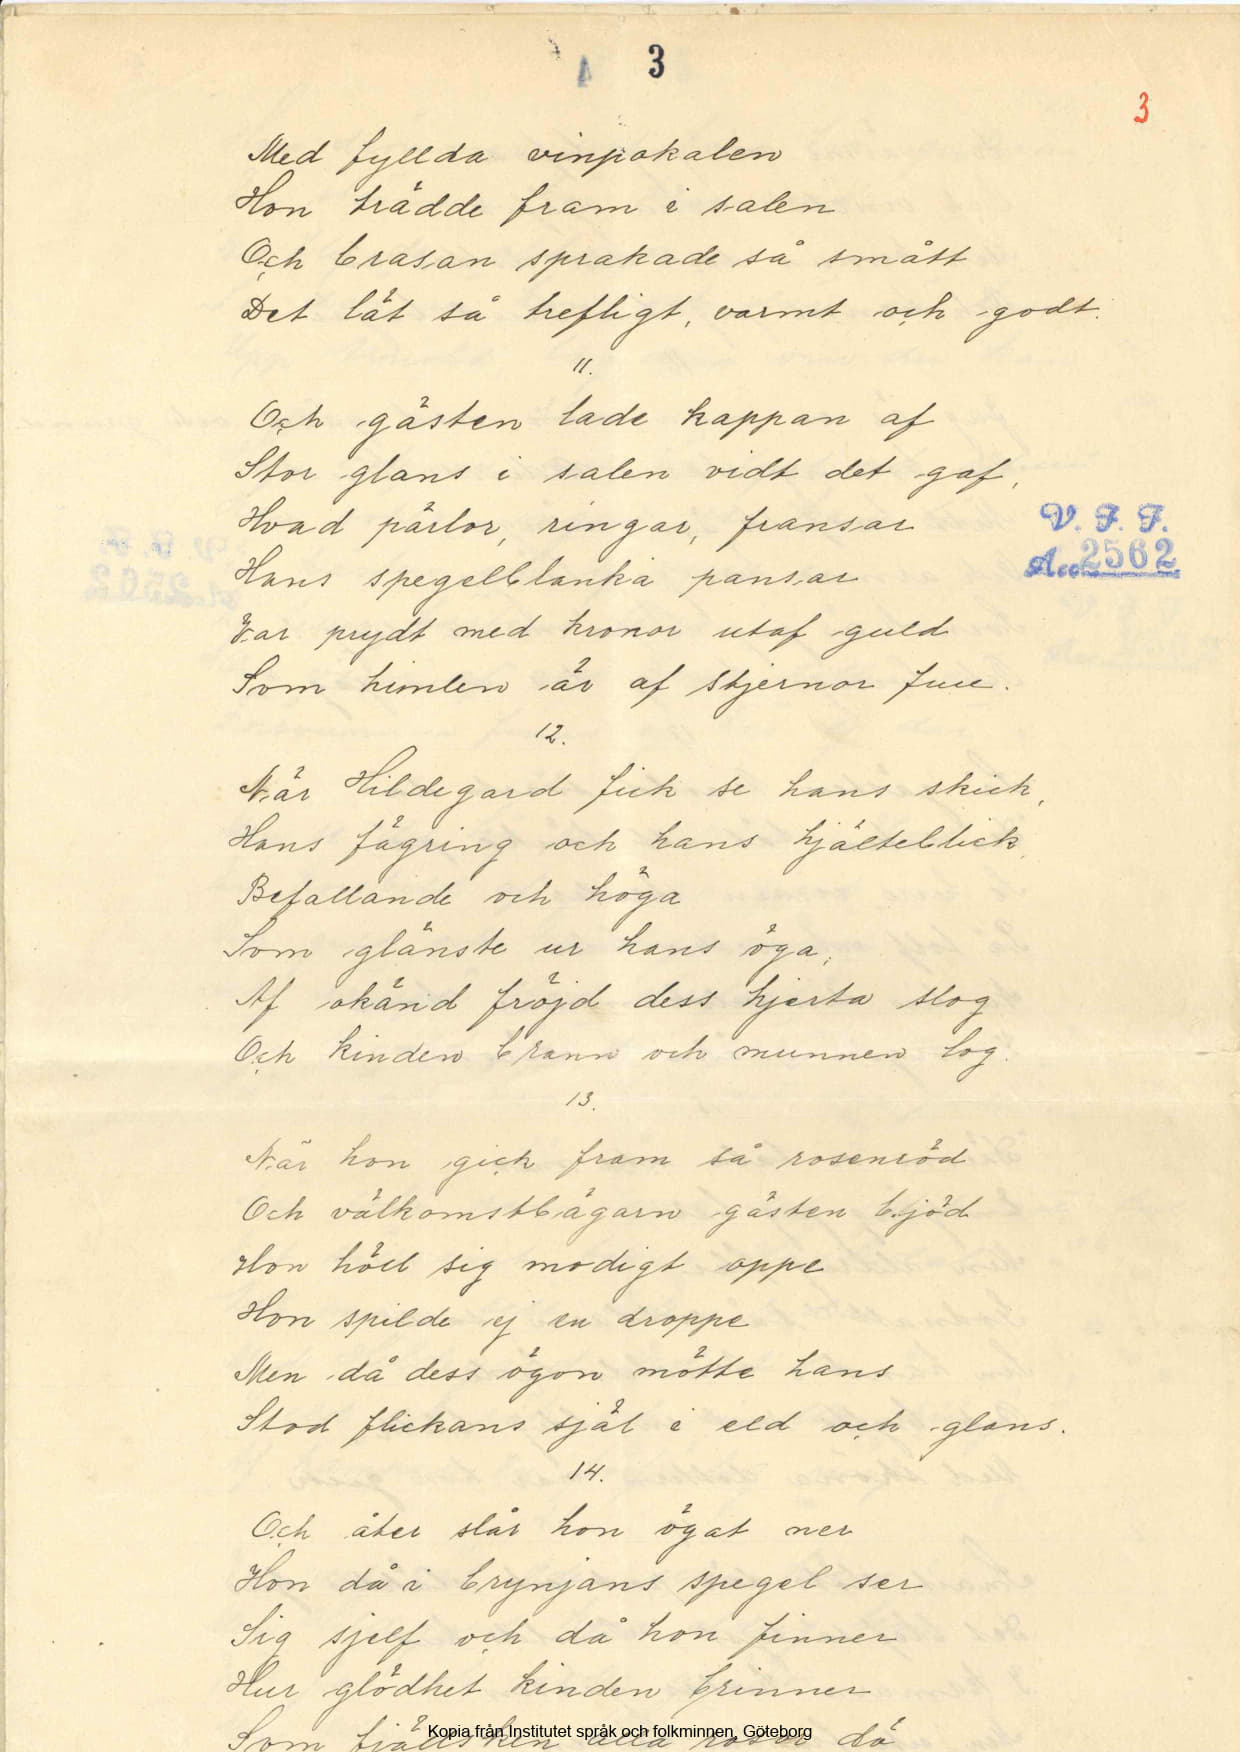 3
3
Med fyllda vinpokalen
Hon trädde fram i salen
Och brasan sprakade så smått
Det lät så trefligt, varmt och godt.
11.
Och gästen lade kappan af
Stor glans i salen vidt det gaf,
Hvad pärlor, ringar, fransar
V. F. F.
Hans spegelblanka pansar
Acc. 2562
Var prydt med kronor utaf guld
Som himlen är af stjernor full.
12.
När Hildegard fick se hans skick,
Hans fägring och hans hjälteblick,
Befallande och höga
Som glänste ur hans öga,
Af okänd fröjd dess hjerta slog
Och kinden brann och munnen log.
13.
När hon gick fram så rosenröd
Och välkomstbägarn gästen bjöd
Hon höll sig modigt oppe
Hon spilde ej en droppe
Men då dess ögon mötte hans
Stod flickans själ i eld och glans.
14.
Och åter slår hon ögat ner
Hon då i brynjans spegel ser
Sig sjelf och då hon finner
Hur glödhet kinden brinner
Som fjällsken alla rosor då
Kopia från Institutet språk och folkminnen, Göteborg